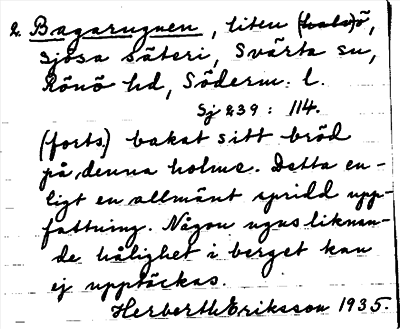 2. Bagarugnen, liten (halv)ö,
Sjösa säteri, Svärta sn,
Rönö hd, Söderm. l.
Sj 239 : 114.
(forts.) bakat sitt bröd
på denna holme. Detta en-
ligt en allmänt spridd upp-
fattning. Någon ugns liknan-
de hålighet i berget kan
ej upptäckas.
Herbert Eriksson 1935.